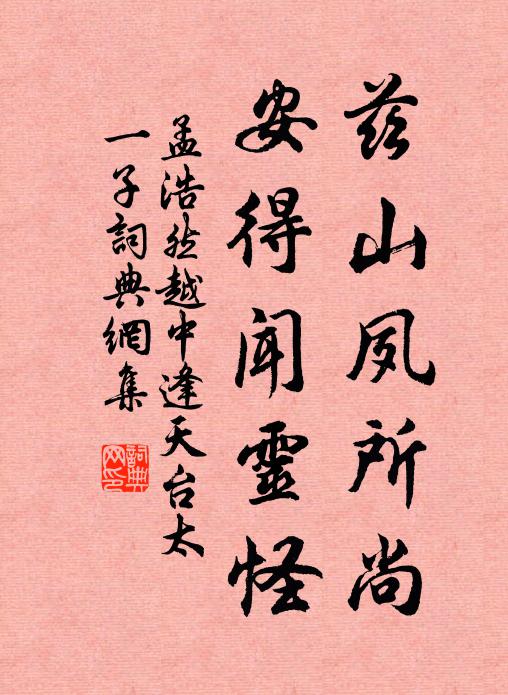 茲山夙所尚
安得聞靈怪
孟浩然越中逢天台太
一子詞典網集
詞典
网印